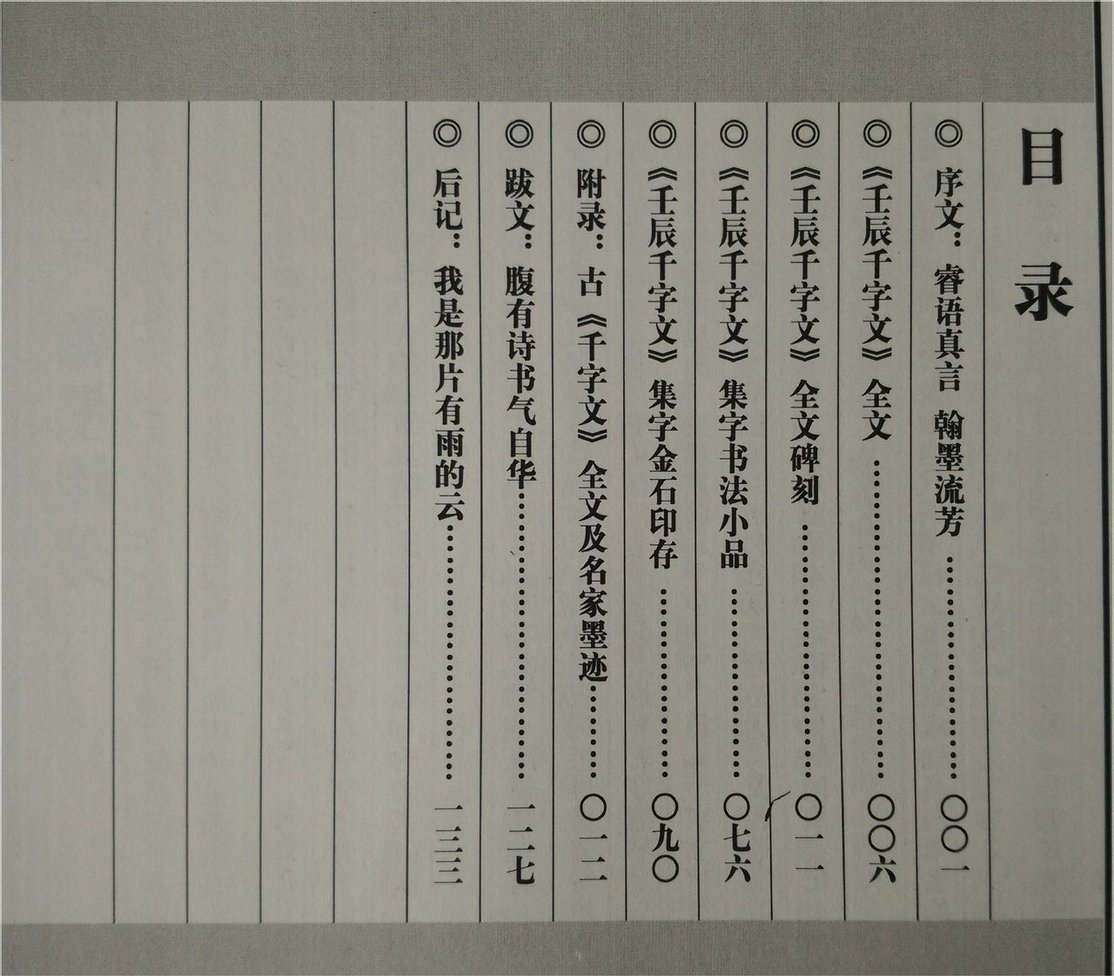 目录
◎ 序文：睿语真言 翰墨流芳……………〇〇一
◎《壬辰千字文》全文……………〇〇六
◎《壬辰千字文》全文碑刻……………〇一一
◎《壬辰千字文》集字书法小品……………〇七六
◎《壬辰千字文》集字金石印存……………〇九〇
◎ 附录：古《千字文》全文及名家墨迹……………〇一二
◎ 跋文：腹有诗书气自华……………一二七
◎ 后记：我是那片有雨的云……………一三三